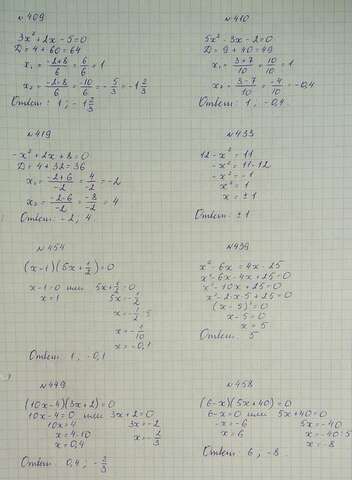 №409
3x² + 2x - 5 = 0
D = 4 + 60 = 64
x₁ = (-2+8)/6 = 6/6 = 1
x₂ = (-2-8)/6 = -10/6 = -5/3 = -1 2/3
Ответ: 1; -1 2/3
№410
5x² - 3x - 2 = 0
D = 9 + 40 = 49
x₁ = (3+7)/10 = 10/10 = 1
x₂ = (3-7)/10 = -4/10 = -0,4
Ответ: 1, -0,4.
№419
-x² + 2x + 8 = 0
D = 4 + 32 = 36
x₁ = (-2+6)/-2 = 4/-2 = -2
x₂ = (-2-6)/-2 = -8/-2 = 4
Ответ: -2, 4
№433
12 - x² = 11
-x² = 11-12
-x² = -1
x² = 1
x = ±1
Ответ: ±1
№454
(x-1)(5x+1/2) = 0
x-1=0 или 5x+1/2=0
x=1 5x=-1/2
x=-1/2·5
x=-1/10
x=-0,1
Ответ: 1, -0,1
x² - 6x = 4x - 25
x² - 6x - 4x + 25 = 0
x² - 10x + 25 = 0
x² - 2·x·5 + 25 = 0
(x-5)² = 0
x-5 = 0
x = 5
Ответ: 5
№449
(10x-4)(3x+2)=0
10x-4=0 или 3x+2=0
10x=4 3x=-2
x=4:10 x=-2/3
x=0,4
Ответ: 0,4; -2/3
№458
(6-x)(5x+40)=0
6-x=0 или 5x+40=0
-x=-6 5x=-40
x=6 x=-40:5
x=-8
Ответ: 6, -8.